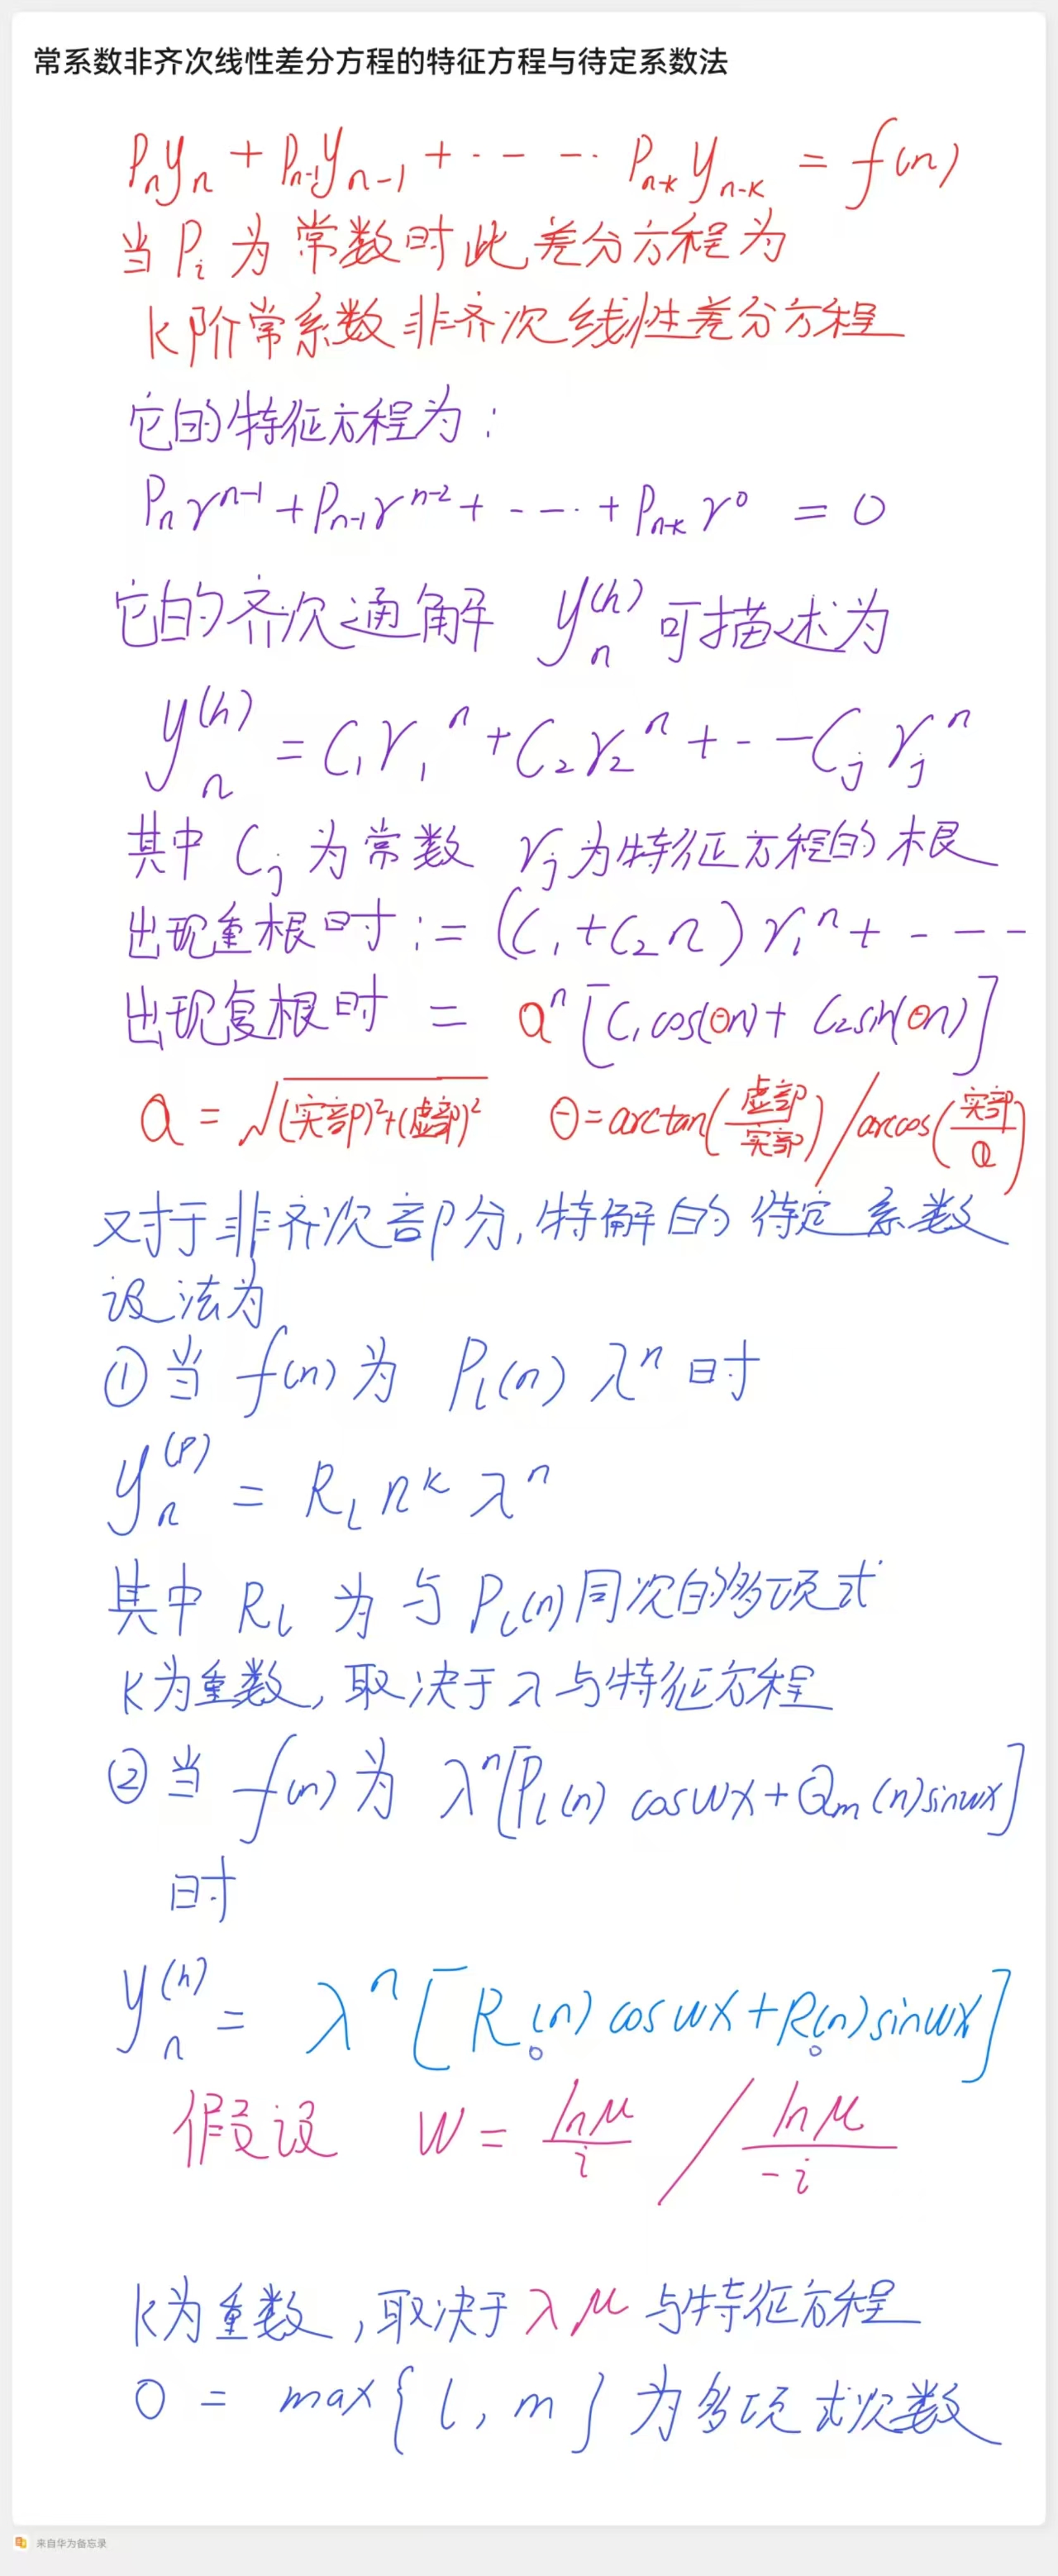 常系数非齐次线性差分方程的特征方程与待定系数法
Pₙyₙ + Pₙ₋₁yₙ₋₁ + ····· Pₙ₋ₖ yₙ₋ₖ = f(n)
当 Pᵢ 为常数时此差分方程为
k阶常系数非齐次线性差分方程
它的特征方程为：
Pₙ r^(n-1) + Pₙ₋₁ r^(n-2) + ---· + Pₙ₋ₖ r⁰ = 0
它的齐次通解 yₙ^(h) 可描述为
yₙ^(h) = C₁r₁ⁿ + C₂r₂ⁿ + --- Cⱼrⱼⁿ
其中 Cⱼ 为常数 rⱼ为特征方程的根
出现重根时：= (C₁+C₂n) r₁ⁿ + ---
出现复根时 = aⁿ[C₁cos(θn) + C₂sin(θn)]
a = √((实部)²+(虚部)²) θ=arctan(虚部/实部) / arccos(实部/a)
又对于非齐次部分,特解的待定系数
设法为
①当 f(n) 为 Pₗ(n) λⁿ 时
yₙ^(P) = Rₗ nᵏ λⁿ
其中 Rₗ 为与 Pₗ(n)同次的多项式
k为重数,取决于λ与特征方程
②当 f(n) 为 λⁿ[Pₗ(n) coswx + Qₘ(n)sinwx]
时
yₙ^(h) = λⁿ[R₀(n) coswx + R₀(n)sinwx]
假设 w = lnμ/i / lnμ/-i
k为重数,取决于λμ与特征方程
0 = max{l, m} 为多项式次数
来自华为备忘录